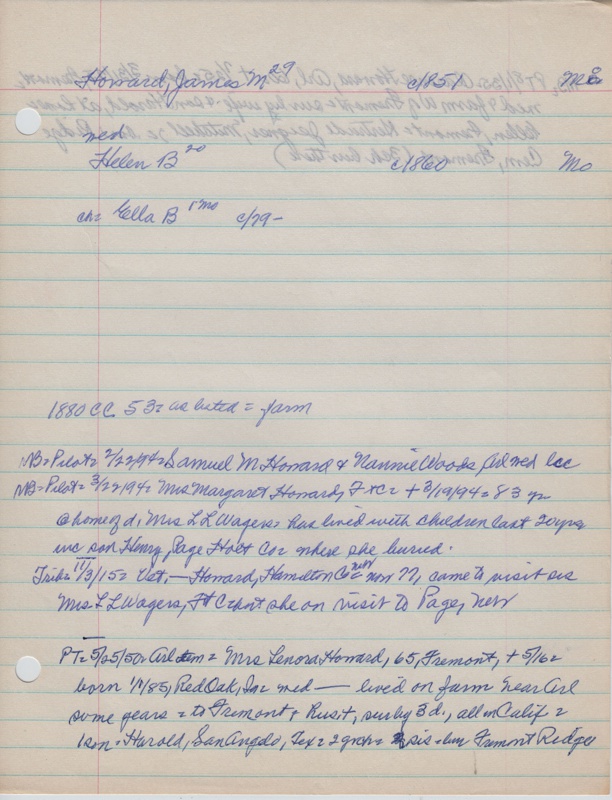 Howard, James M 29 c/1851 Mo
med
Helen B 20 c/1860 Mo
ch= Ella B 1 mo c/79-
1880 CC 53= as listed = farm
NB=Pilot= 2/22/94= Samuel M Howard & Nannie Woods, Arl med lcc
NB=Pilot= 3/22/94= Mrs Margaret Howard, F X C= + 3/19/94= 83 yr
@ home of d, Mrs L L Wagers= has lived with children last 20 yrs
inc son Henry, Page Holt Co= where she buried.
Trib= 11/3/15= Vet, — Howard, Hamilton Co New now 77, came to visit sis
Mrs L L Wagers, Ft C but she on visit to Page, New
PT= 5/25/50= Arl = Mrs Lenora Howard, 65, Fremont, + 5/16=
born 1/1/85, Red Oak, Ia= med — lived on farm near Arl
some years = to Fremont, sur by 3 d., all in Calif =
1 son= Harold, San Angelo, Tex = 2 gch= sis= Fremont Ridge